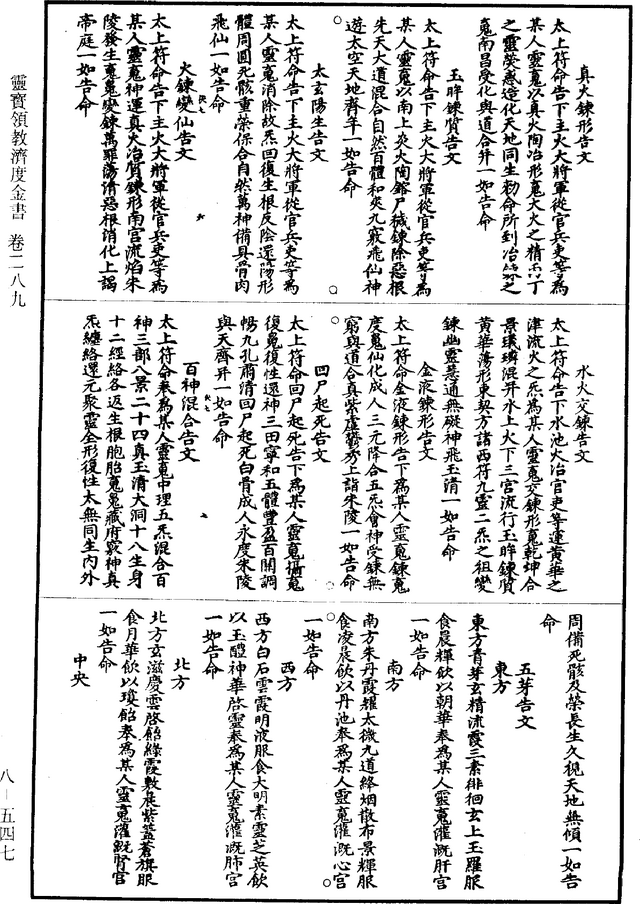 真火鍊形告文
太上符命告下主火大將軍從官兵吏等為
某人靈䰟以真火陶冶形䰟大火之精丙丁
之靈熒惑造化天地同生勑命所到冶鍊之
䰟南昌受化與道合并一如告命
玉眸鍊質告文
太上符命告下主火大將軍從官兵吏等為
某人靈䰟以南上炎火陶鎔尸穢鍊除惡根
先天大道混合自然百體和夾九竅飛仙神
遊太空天地齊年一如告命
太玄陽生告文
太上符命告下主火大將軍從官兵吏等為
某人靈䰟消除故炁回復生根反陰還陽形
體周圓死骸重榮保合自然萬神備具骨肉
飛仙一如告命
火鍊變仙告文
太上符命告下主火大將軍從官兵吏等為
某人靈䰟神運真火冶質鍊形南宮流焰朱
陵發生䰟䰟變鍊萬罪蕩清惡根消化上謁
帝庭一如告命
靈寶領教濟度金書 卷二八九
水火交鍊告文
太上符命告下水池火冶官吏等運黄華之
津流火之炁為某人靈䰟交鍊形䰟乾坤合
景璣璘混并水上火下三宮流行玉眸鍊質
黄華蕩形東契方諸西符九靈二炁之祖變
鍊幽靈慧通無礙神飛玉清一如告命
金液鍊形告文
太上符命金液鍊形告下為某人靈䰟鍊䰟
度䰟仙化成人三元降合五炁會神受鍊無
窮與道合真紫虛欝秀上詣朱陵一如告命
回尸起死告文
太上符命回尸起死告下為某人靈䰟攝䰟
復䰟復性還神三田寧和五體豐盈百關調
暢九孔肅清回尸起死白骨成人永度朱陵
與天齊并一如告命
百神混合告文
太上符命奉為某人靈䰟中理五炁混合百
神三部八景二十四真玉清大洞十八生身
十二經絡各返生根胞胎䰟䰟藏府竅神真
炁纏絡還元聚靈全形復性太無同生内外
周備死骸及榮長生久視天地無傾一如告
命
五芽告文
東方
東方青芽玄精流霞三素徘徊玄上玉羅服
食晨輝飲以朝華奉為某人靈䰟灌溉肝宮
一如告命
南方
南方朱丹霞耀太微九道絳烟散布景輝服
食淩晨飲以丹池奉為某人靈䰟灌溉心宮
一如告命
西方
西方白石雲霞明液服食大明素靈芝英飲
以玉醴神華啓靈奉為某人靈䰟灌溉肺宮
一如告命
北方
北方玄滋慶雲啓飴綠霞敷展紫蓋蒼旗服
食月華飲以瓊飴奉為某人靈䰟灌溉腎宮
一如告命
中央
八－五四七